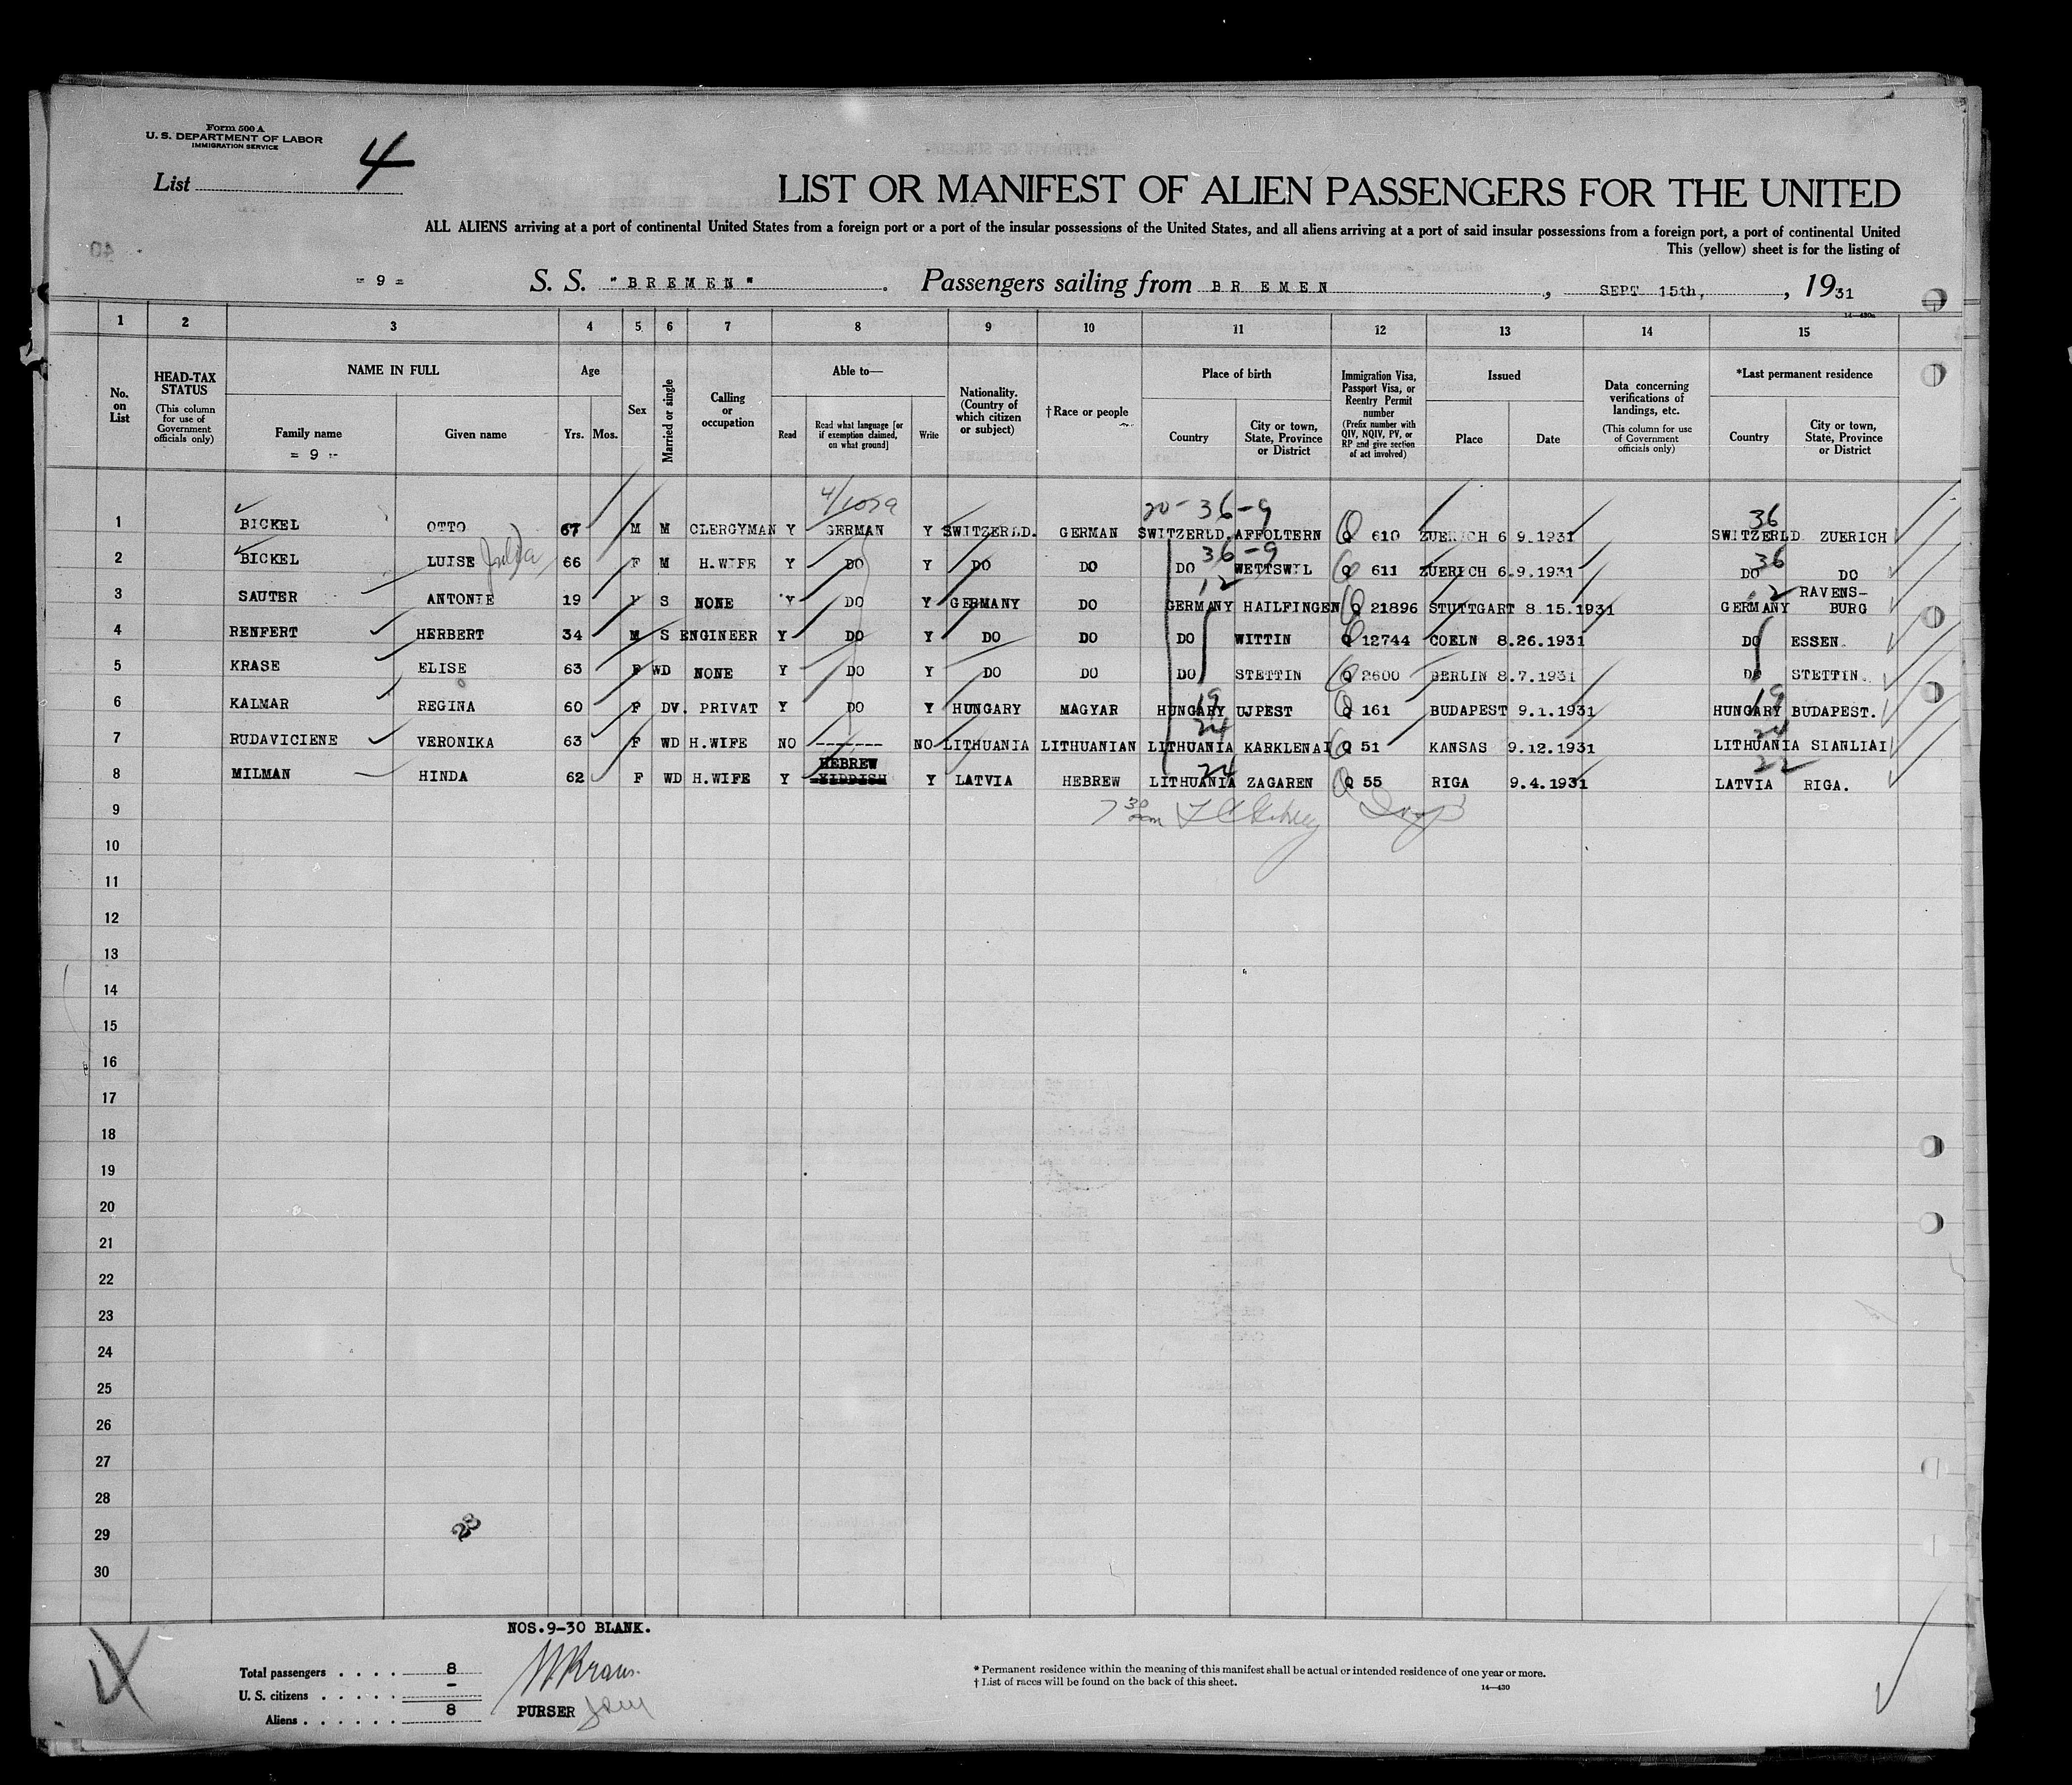 Form 500 A
U. S. DEPARTMENT OF LABOR
IMMIGRATION SERVICE
List 4
LIST OR MANIFEST OF ALIEN PASSENGERS FOR THE UNITED
ALL ALIENS arriving at a port of continental United States from a foreign port or a port of the insular possessions of the United States, and all aliens arriving at a port of said insular possessions from a foreign port, a port of continental United
This (yellow) sheet is for the listing of
= 9 = S. S. "BREMEN" . Passengers sailing from BREMEN , SEPT 15th, , 1931
14—430a
1 2 3 4 5 6 7 8 9 10 11 12 13 14 15
No. on List
HEAD-TAX STATUS (This column for use of Government officials only)
NAME IN FULL
Family name
= 9 =
Given name
Age
Yrs. Mos.
Sex
Married or single
Calling or occupation
Able to—
Read
Read what language [or if exemption claimed, on what ground]
Write
Nationality. (Country of which citizen or subject)
†Race or people
Place of birth
Country
City or town, State, Province or District
Immigration Visa, Passport Visa, or Reentry Permit number (Prefix number with QIV, NQIV, PV, or RP and give section of act involved)
Issued
Place
Date
Data concerning verifications of landings, etc. (This column for use of Government officials only)
*Last permanent residence
Country
City or town, State, Province or District
20-36-9 36
1 BICKEL OTTO 67 M M CLERGYMAN Y GERMAN Y SWITZERLD. GERMAN SWITZERLD. AFFOLTERN Q 610 ZUERICH 6 9.1931 SWITZERLD ZUERICH
36-9 36
2 BICKEL LUISE Julia 66 F M H.WIFE Y DO Y DO DO DO WETTSWIL Q 611 ZUERICH 6.9.1931 DO DO
12
3 SAUTER ANTONIE 19 F S NONE Y DO Y GERMANY DO GERMANY HAILFINGEN Q 21896 STUTTGART 8.15.1931 GERMANY RAVENS-BURG
4 RENFERT HERBERT 34 M S ENGINEER Y DO Y DO DO DO WITTIN Q 12744 COELN 8.26.1931 DO ESSEN.
5 KRASE ELISE 63 F WD NONE Y DO Y DO DO DO STETTIN Q 2600 BERLIN 8.7.1931 DO STETTIN.
19 19
6 KALMAR REGINA 60 F DV. PRIVAT Y DO Y HUNGARY MAGYAR HUNGARY UJPEST Q 161 BUDAPEST 9.1.1931 HUNGARY BUDAPEST.
24 24
7 RUDAVICIENE VERONIKA 63 F WD H.WIFE NO -------- NO LITHUANIA LITHUANIAN LITHUANIA KARKLENAI Q 51 KANSAS 9.12.1931 LITHUANIA SIANLIAI
24 22
8 MILMAN HINDA 62 F WD H.WIFE Y HEBREW YIDDISH Y LATVIA HEBREW LITHUANIA ZAGAREN Q 55 RIGA 9.4.1931 LATVIA RIGA.
9 7 30
10
11
12
13
14
15
16
17
18
19
20
21
22
23
24
25
26
27
28
29
30
NOS.9-30 BLANK.
Total passengers . . . . 8
U. S. citizens . . . . . -
Aliens . . . . . . 8
PURSER
* Permanent residence within the meaning of this manifest shall be actual or intended residence of one year or more.
† List of races will be found on the back of this sheet.
14—430